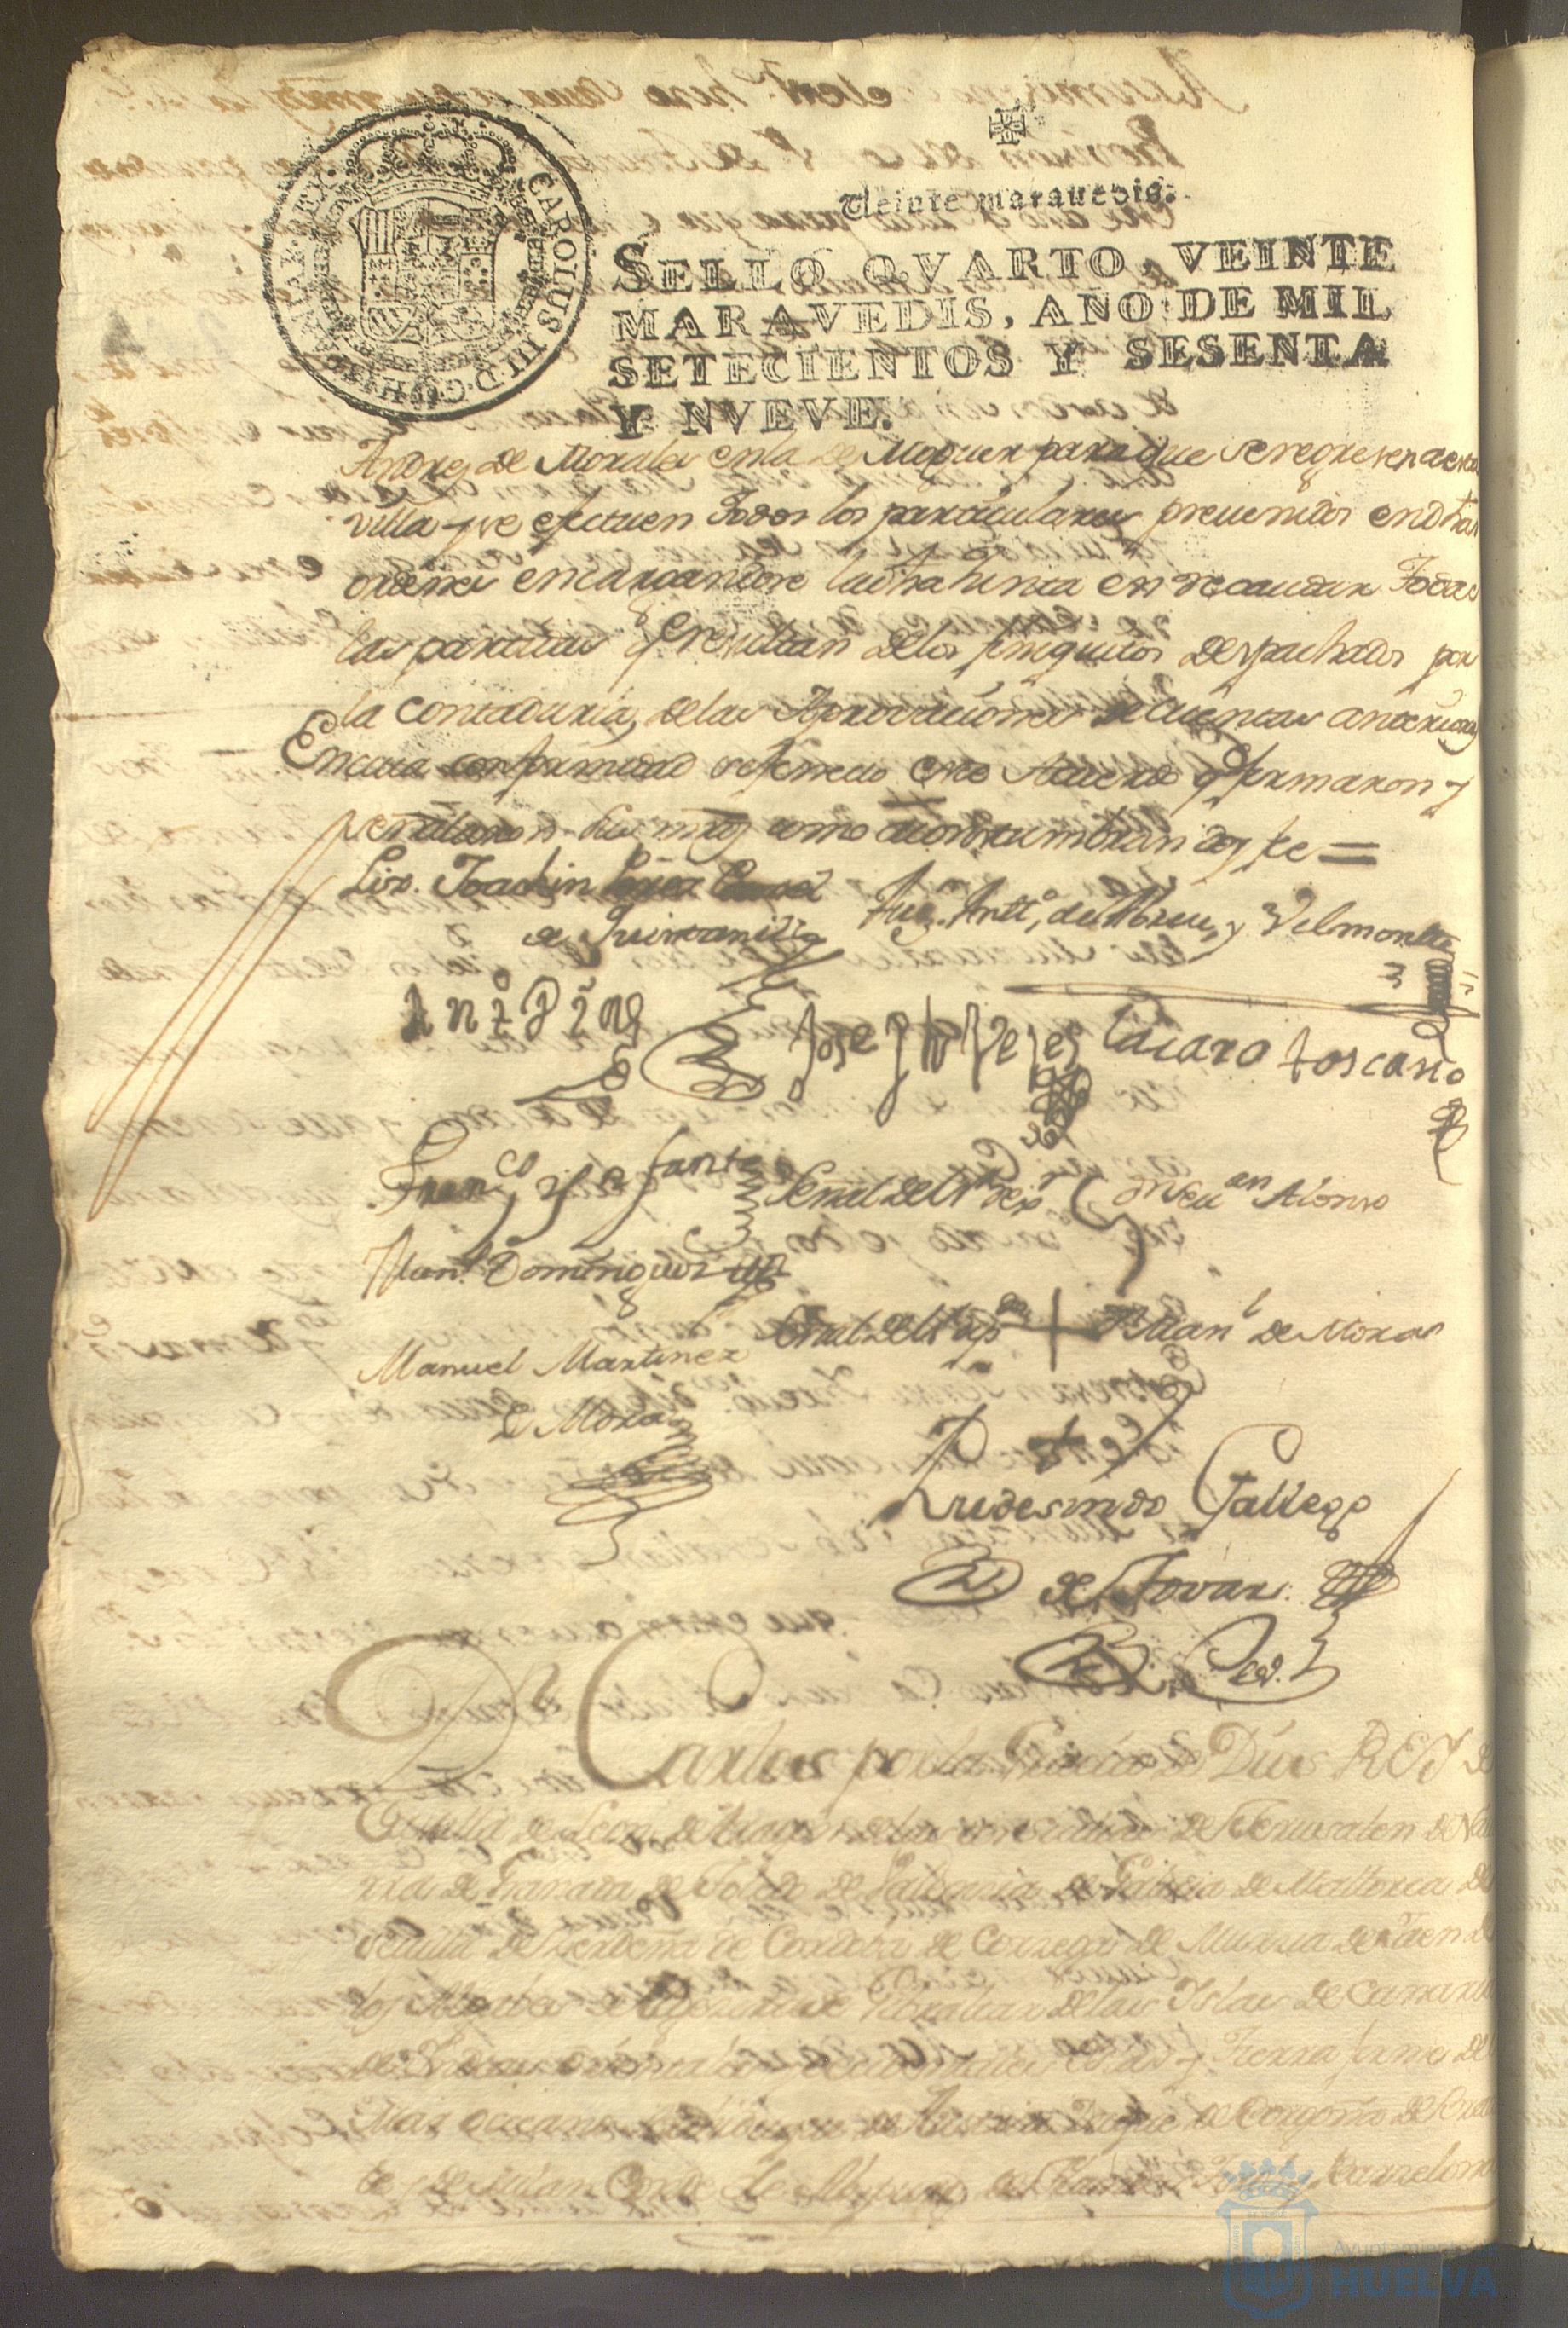 CAROLUS III D. G. HISPANIAR. REX.
Veinte marauedis.
SELLO QVARTO, VEINTE
MARAVEDIS, AÑO DE MIL
SETECIENTOS Y SESENTA
Y NVEVE.
Andres de Morales en la de Moguer para que se regresen a esta
villa y se efectuen Todos los particulares preuenidos en dhas
ordenes encargandose la dha Junta en recaudar Todas
las partidas q resultan de los finiquitos despachados por
la contaduria, de las Aprovaciones de cuentas anteriores
En cuia conformidad se fenecio este Acuerdo q firmaron y
señalaron sus mrds como acostumbran doy fe =
Liz. Joachin
de Quintanilla
Antt.º de Abreu, y Velmonte
Lazaro toscano
Fran.co ynfante
Señal del
Alonso
Man.l Dominguez
Señal del + Man.l de Mora
Manuel Martinez
de Mora
Rudesindo Gallego
de Tovar.
D Carlos por la Gracia de Dios REY de
Castilla de Leon de Aragon de las dos Sicilias de Jerusalen de Na
rra de Granada de Toledo de Valencia de Galicia de Mallorca de
Seuilla de Zerdeña de Cordova de Corzega de Murcia de Jaen de
los Algarbes de Algeciras de Gibraltar de las Islas de Canaria
de las Indias orientales y occidentales Islas y Tierra firme del
Mar occeano Archiduque de Austria Duque de Borgoña de Braba
te y de Milan Conde de Abspurg de Flandes Tirol y Barzelona
Ayuntamiento
HUELVA